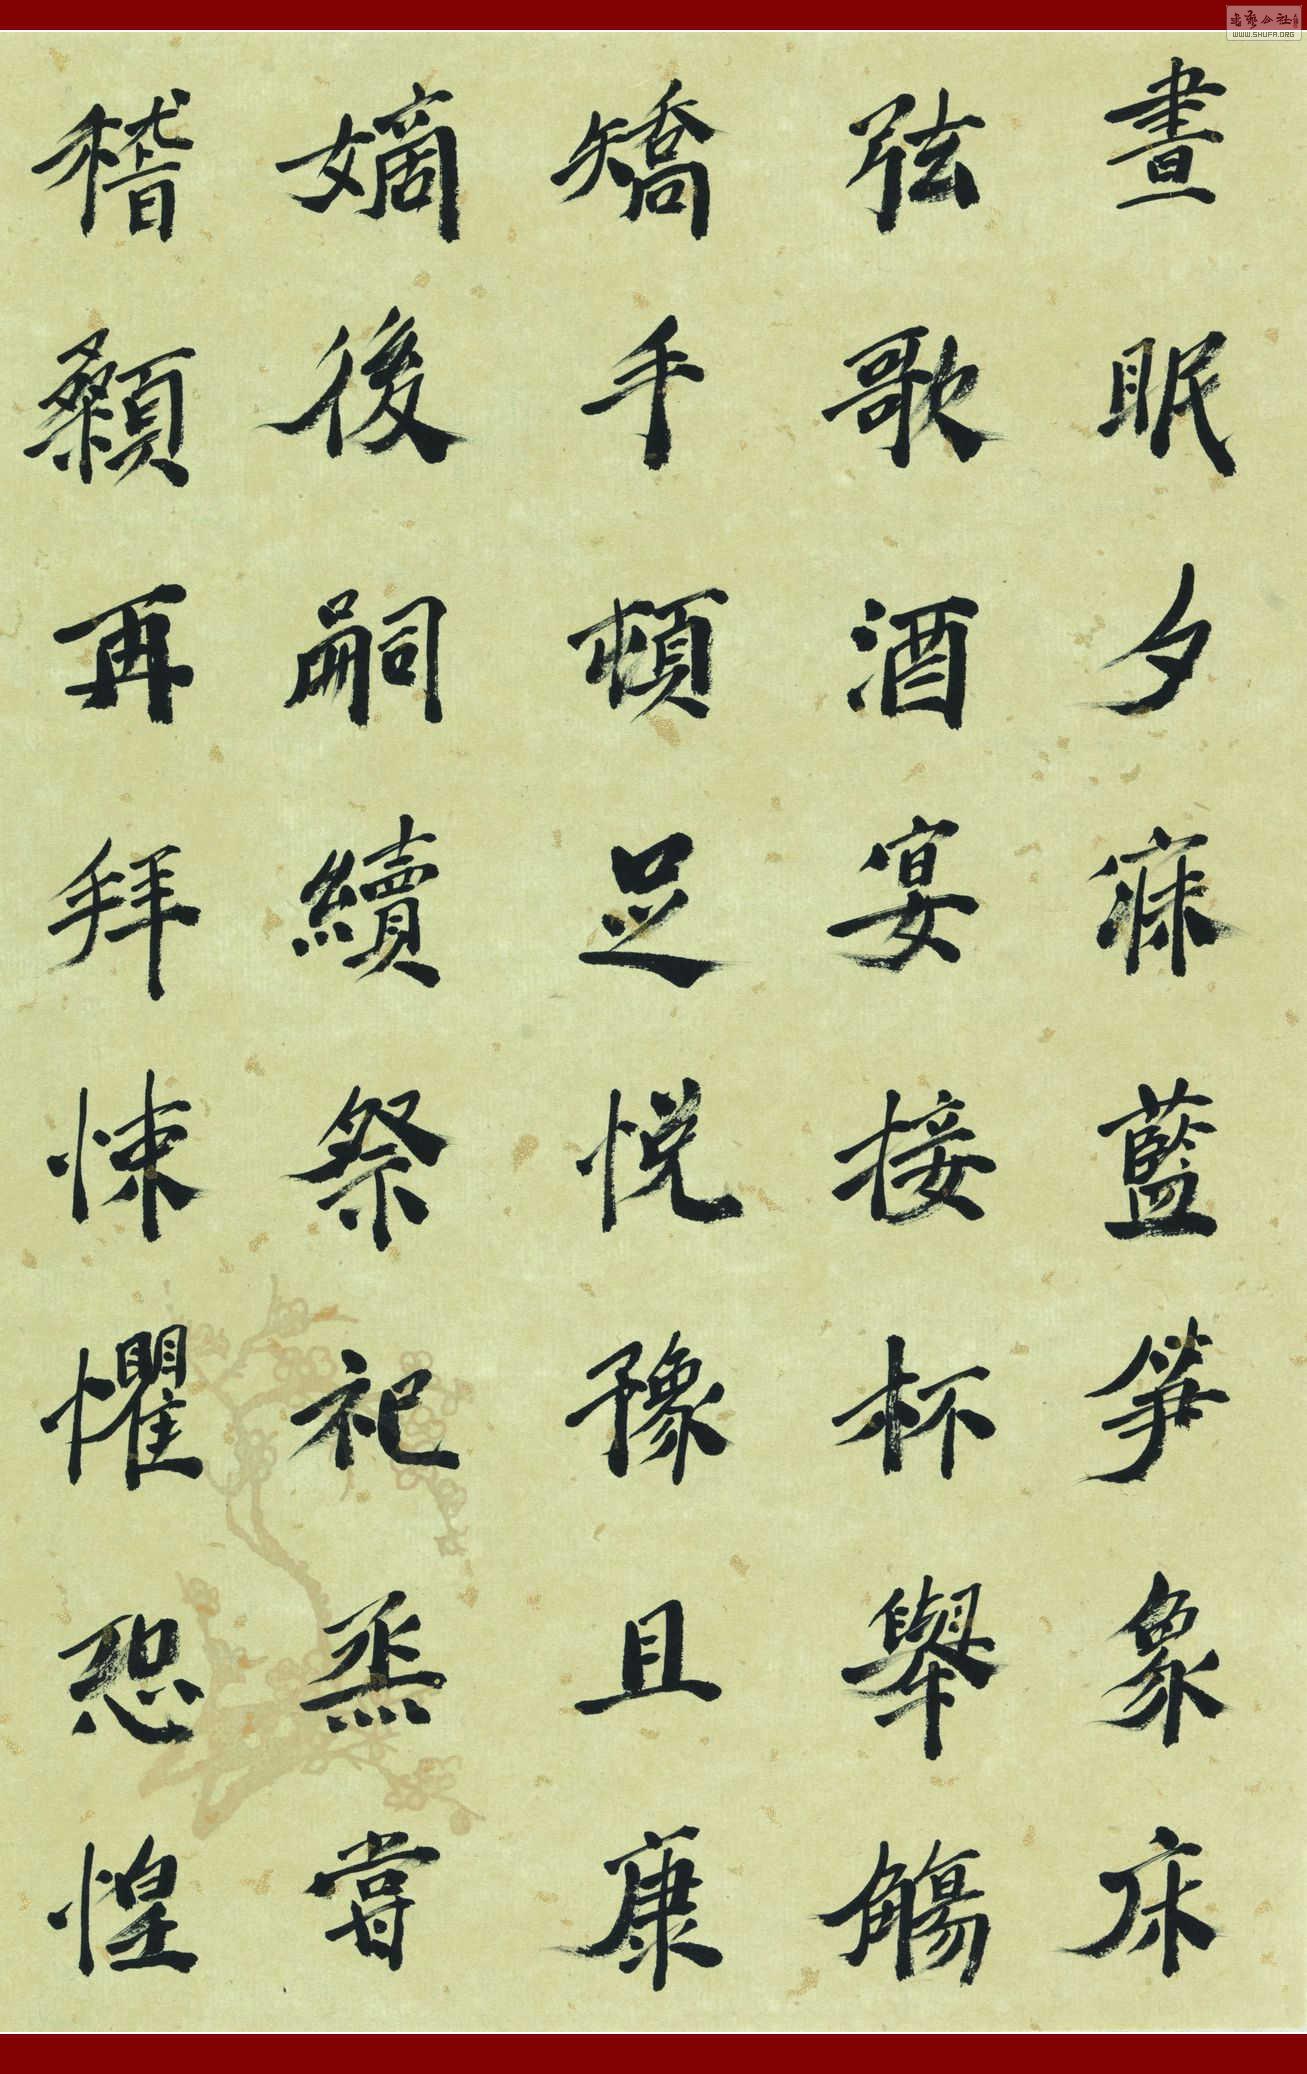 晝眠夕寐藍笋象床
弦歌酒宴接杯舉觴
矯手頓足悅豫且康
嫡後嗣續祭祀烝嘗
稽顙再拜悚懼恐惶
WWW.SHUFA.ORG